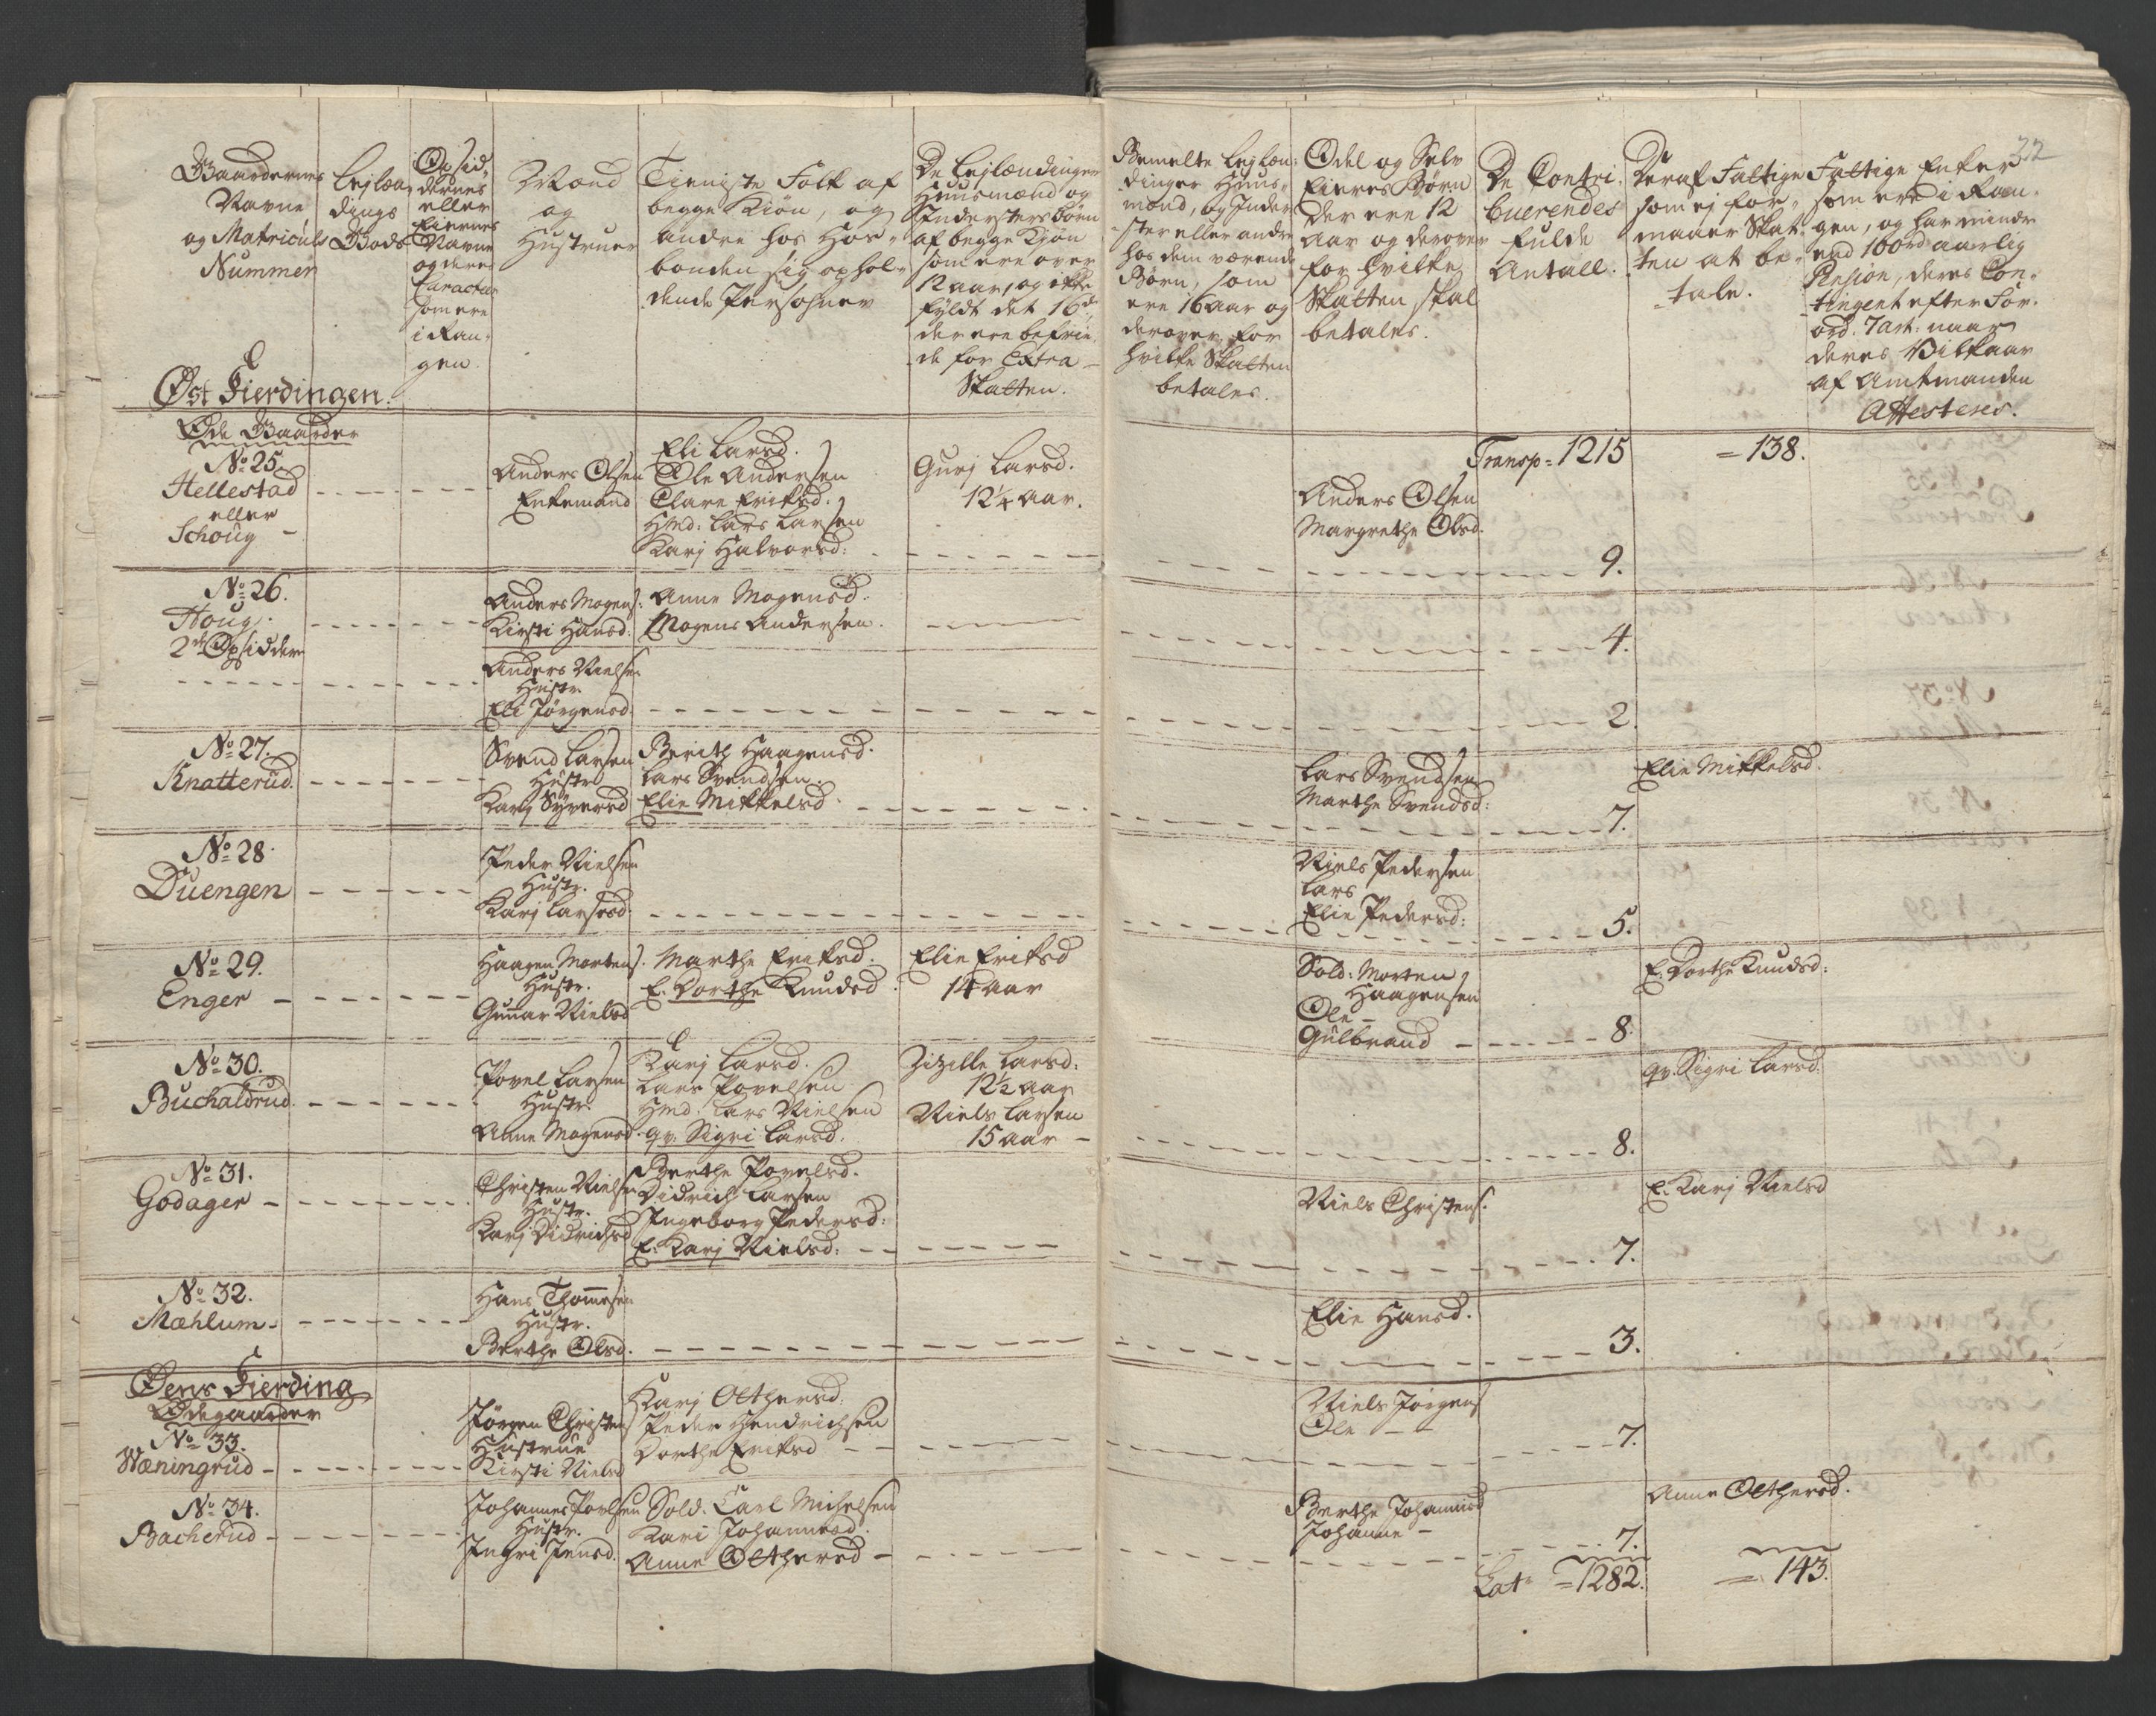 22
Gaardernes
Navne
og Matriculs
Nummer
Lejlæn
dings
Gods
Opsid„
dernes
eller
Eiernes
Navne
og deres
Caracter
som ere
i Ran„
gen.
Mænd
og
Hustruer
Tieniste Folk af
begge Kiøn, og
andre hos Hos„
bonden sig ophol„
dende Persohner
De Lejlændinger
Huusmænd og
Indersters børn
af begge Kiøn
som ere over
12 aar, og ikke
fyldt det 16de
der ere befrie„
de for Extra
Skatten.
Bemelte Lejlæn„
dinger Huus„
mænd, og Inder
ster eller andre
hos dem værende
Børn, som
ere 16 aar og
derover, for
hvilke Skatten
betales.
Odel og Selv
Eieres Børn
der ere 12
aar og derover
for hvilke
Skatten skal
betales.
De Contri„
buerendes
fulde
Antall.
Deraf Fattige
som ej for„
maaer Skat„
ten at be„
tale.
Fattige Enker
som ere i Ran„
gen, og har mindre
end 100rd aarlig
Pension, deres Con„
tingent efter For.
ord. 7 art: naar
deres Vilkaar
af Amtmanden
Attesteres.
Øst Fierdingen.
Øde Gaarder
Transp = 1215
= 138.
No 25
Hellestad
eller
Schoug
Anders Olsen
Enkemand
Eli Larsd.
Ole Andersen
Clare Eriksd.
Hmd: Lars Larsen
Karj Halvorsd:
Gurj Larsd.
12 1/4 aar.
Anders Olsen
Margrethe Olsd.
9.
No 26.
Houg.
2de Opsiddere
Anders Mogens:
Kirsti Hansd:
Anne Mogensd.
Mogens Andersen.
4.
Anders Nielsen
Hustr.
Eli Jørgensd.
2.
No 27.
Knatterud.
Svend Larsen
Hustr
Karj Syversd
Berith Haagensd.
Lars Svendsen.
Elie Mikkelsd.
Lars Svendsen
Marthe Svendsd:
7.
Elie Mikkelsd.
No 28.
Duengen
Peder Nielsen
Hustr.
Karj Larsesd.
Niels Pedersen
Lars
Elie Pedersd:
5.
No 29.
Enger
Haagen Mortens.
Hustr.
Gunnar Nielsd
Marthe Eriksd.
E. Dorthe Knudsd.
Elie Eriksd
14 aar
Sold: Morten
Haagensen
Ole
Gulbrand
8.
E. Dorthe Knudsd:
No 30.
Buchaldrud.
Povel Larsen
Hustr.
Anne Mogensd.
Karj Larsd.
Lars Povelsen
Hmd. Lars Nielsen
qv. Sigri Larsd.
Zizille Larsd:
12 1/2 aar
Niels Larsen
15 aar
8.
qv. Sigri Larsd.
No 31.
Godager
Christen Nielsen
Hustr.
Karj Didrichsd
Berthe Povelsd.
Didrich Larsen
Ingeborg Pedersd:
E. Karj Nielsd:
Niels Christens.
7.
E. Karj Nielsd
No 32.
Mæhlum
Hans Thomesen
Hustr.
Berthe Olsd.
Elie Hansd.
3.
Øens Fierding
Ødegaarder
No 33.
Wæningrud
Jørgen Christens
Hustrue
Kirsti Nielsd
Karj Olthersd.
Peder Hendrichsen
Dorthe Eriksd
Niels Jørgens
Ole
7.
No 34.
Bacherud
Johannes Povlsen
Hustr.
Ingri Jensd.
Sold. Carl Michelsen
Kari Johannesd.
Anne Olthersd
Berthe Johannesd
Johanne
7.
Anne Olthersd.
Lat = 1282.
= 143.